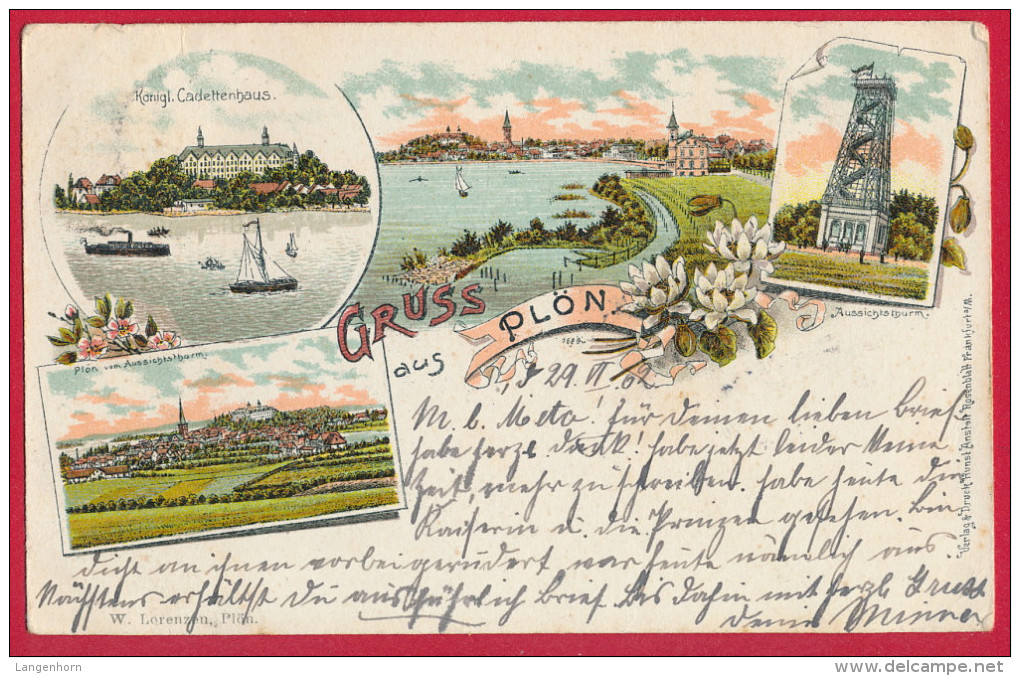 Königl. Cadettenhaus.
Aussichtsthurm.
GRUSS
aus
PLÖN.
Plön vom Aussichtsthurm.
29. VI 02
M. l. Meta! für deinen lieben Brief
habe herzl dank! habe jetzt leider keine
Zeit, mehr zu schreiben. habe heute die
Kaiserin u. die Prinzen gesehen. Bin
dicht an ihnen vorbeigerudert war heute nämlich aus.
Nächstens erhältst du ausführlich Brief. Bis dahin mit herzl Gruss
deine Minna
W. Lorenzen, Plön.
Verlag & Druck Kunst Anstalt Rosenblatt Frankfurt a/M.
Langenhorn
www.delcampe.net